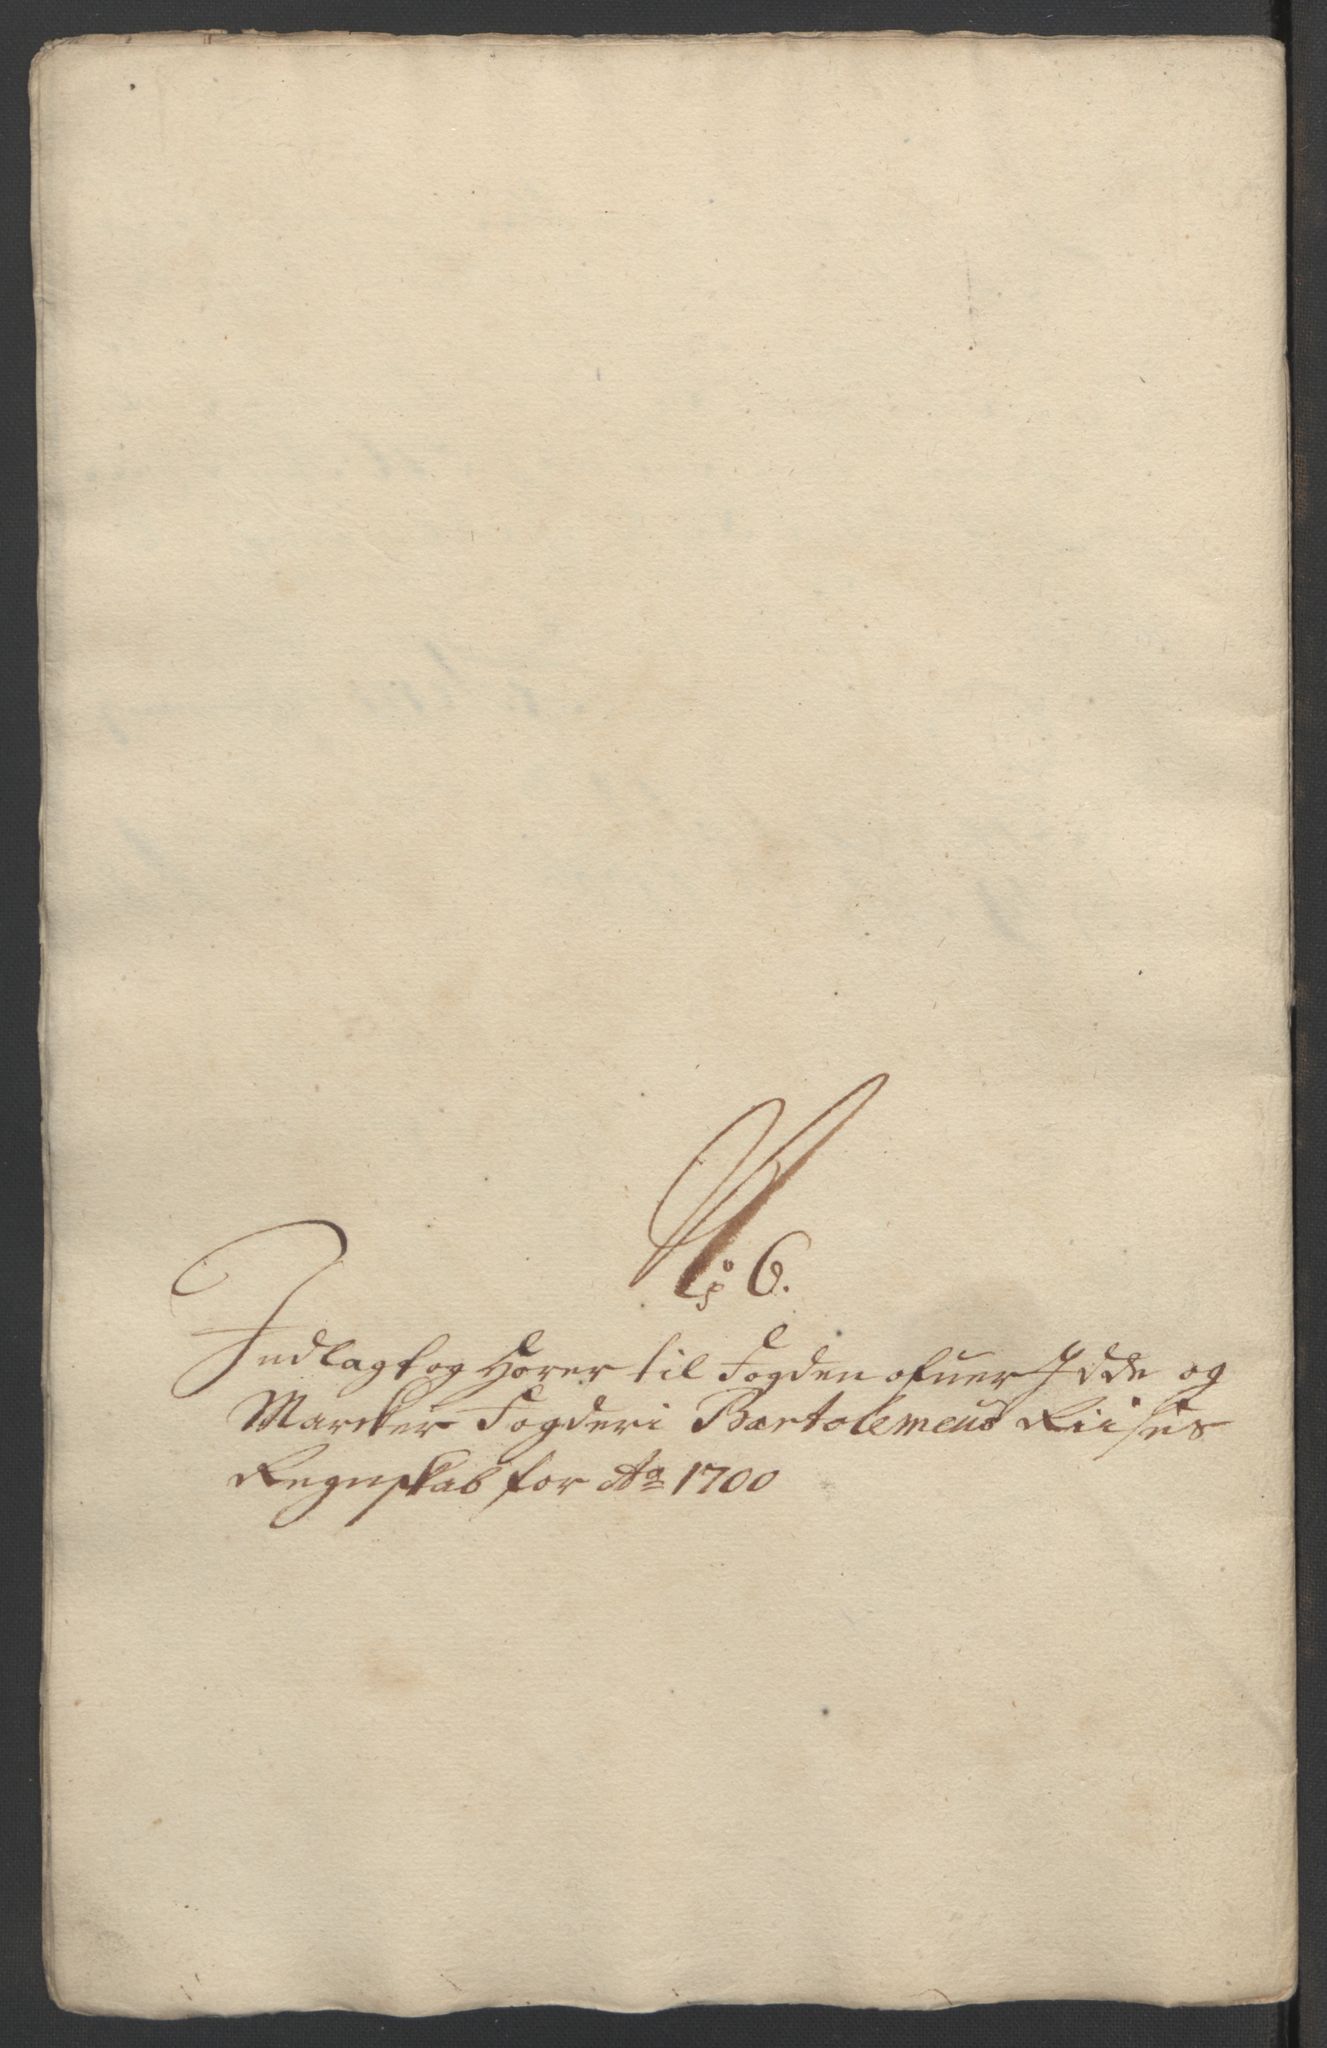 No 6.
Indlagt og Hører til Fogden ofuer Idde og
Marcker Fogderi Bartolemeus Riises
Regnskab for Ao 1700